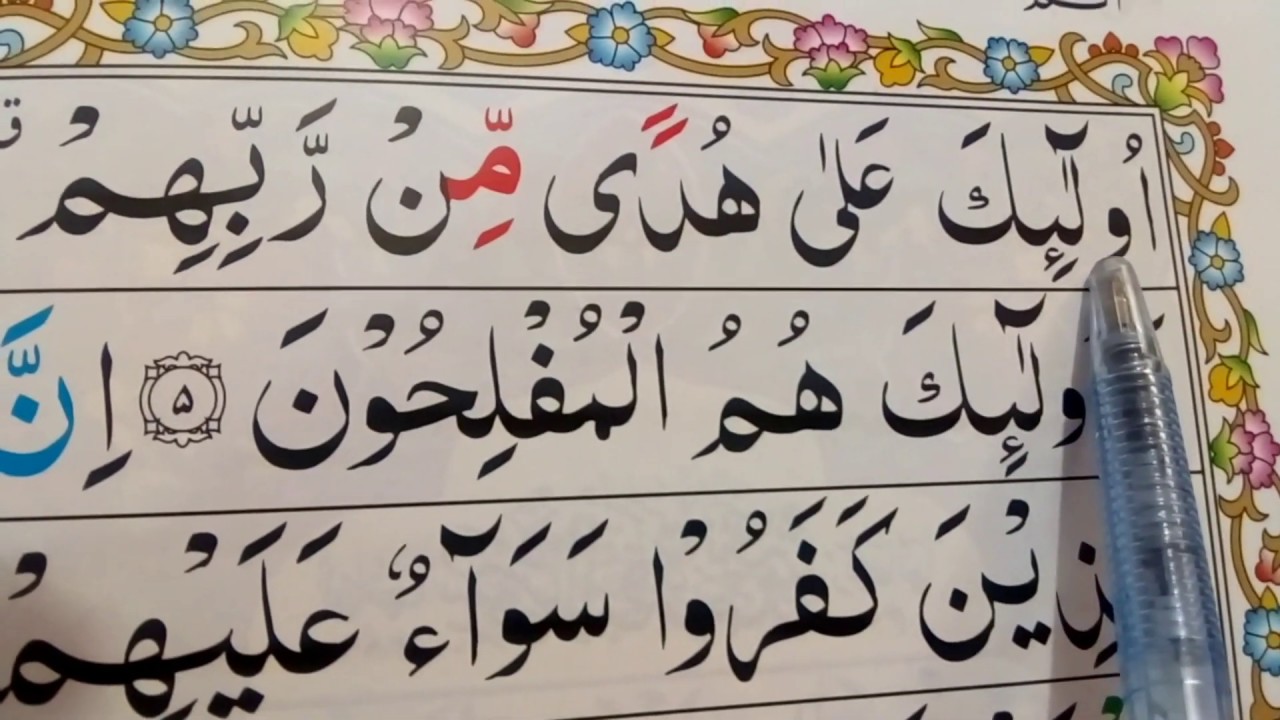 اُولٰٓئِكَ عَلٰى هُدًى مِّنْ رَّبِّهِمْ ق
وَاُولٰٓئِكَ هُمُ الْمُفْلِحُوْنَ ۵ اِنَّ
الَّذِيْنَ كَفَرُوْا سَوَآءٌ عَلَيْهِمْ